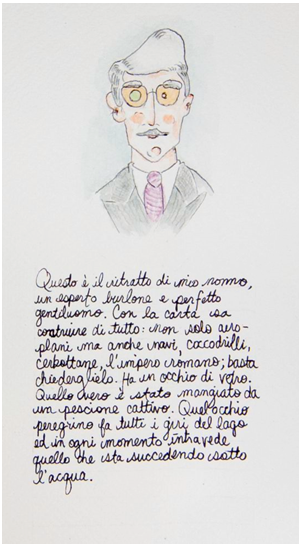 Questo è il ritratto di mio nonno,
un esperto burlone e perfetto
gentiluomo. Con la carta sa
costruire di tutto: non solo aero-
plani ma anche navi, coccodrilli,
cerbottane, l'impero romano; basta
chiederglielo. Ha un occhio di vetro.
Quello vero è stato mangiato da
un pescione cattivo. Quel occhio
peregrino fa tutti i giri del lago
ed in ogni momento intravede
quello che sta succedendo sotto
l'acqua.